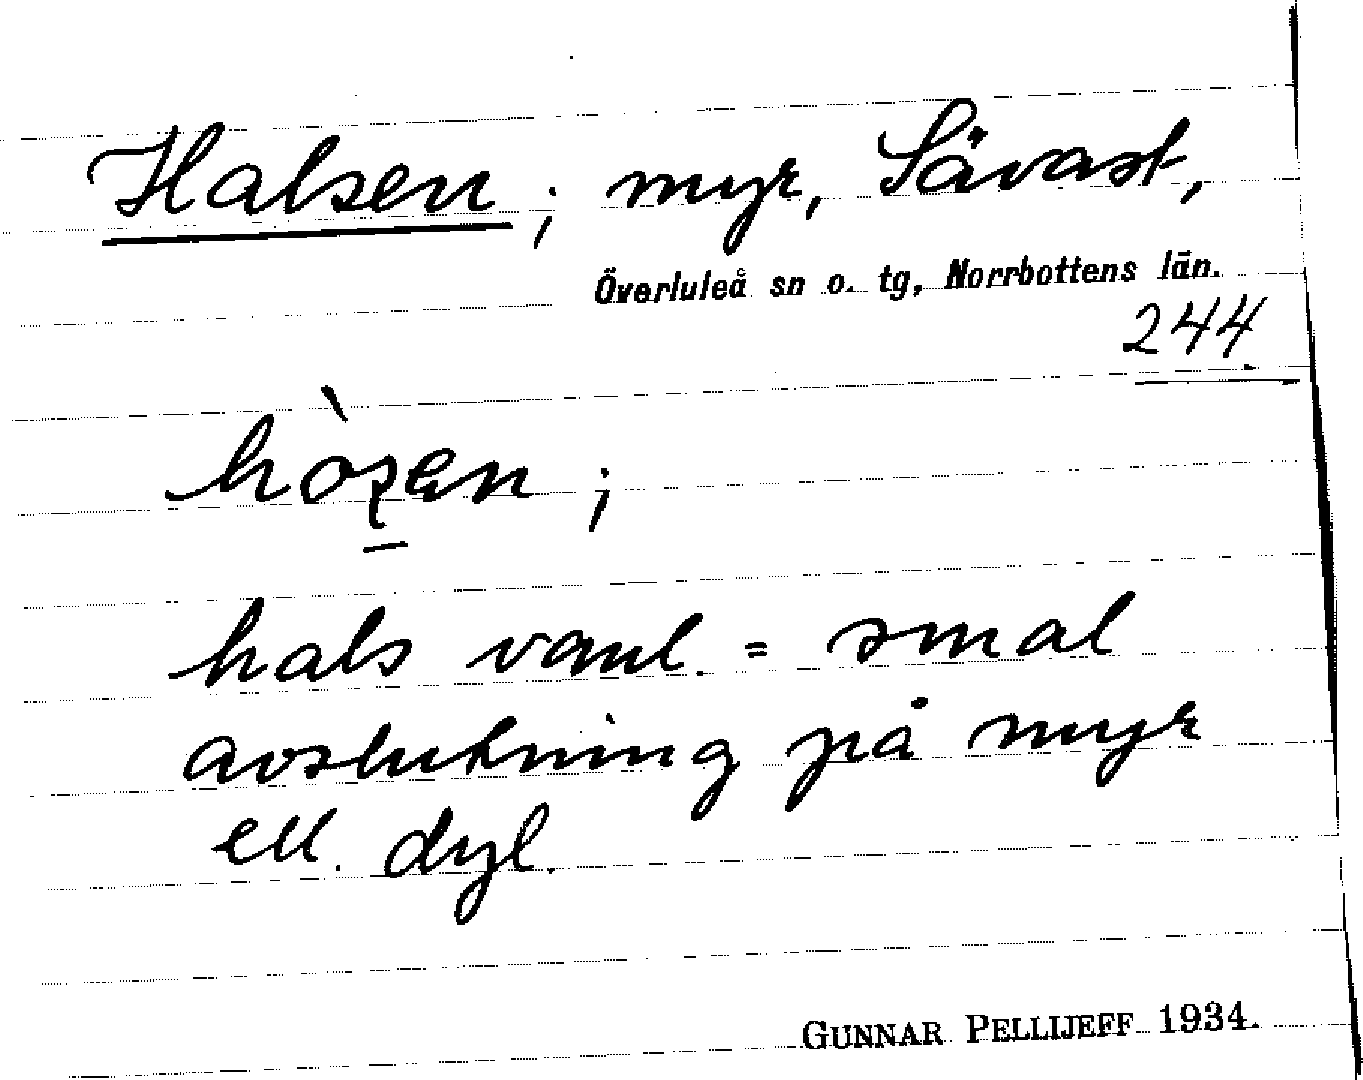 Halsen; myr, Sävast,
Överluleå sn o. tg, Norrbottens län.
244
hals vanl. = smal
avslutning på myr
ell. dyl.
GUNNAR PELLIJEFF 1934.